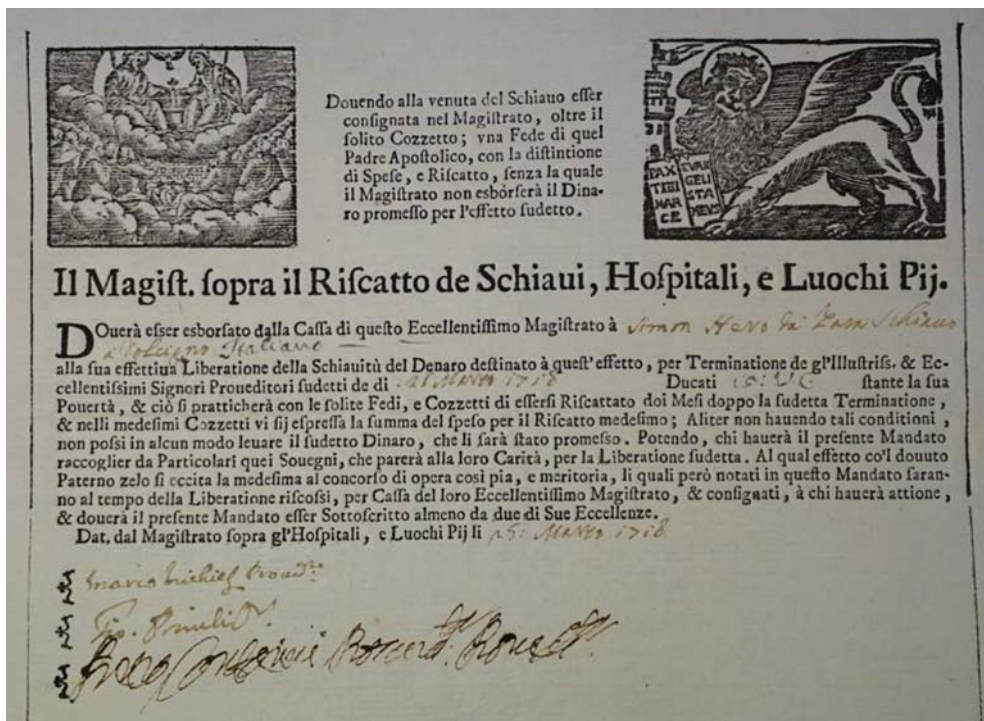 Douendo alla venuta del Schiauo esser
consignata nel Magistrato, oltre il
solito Cozzetto; vna Fede di quel
Padre Apostolico, con la distintione
di Spese, e Riscatto, senza la quale
il Magistrato non esborserà il Dina-
ro promesso per l'effetto sudetto.
PAX
TIBI
MAR
CE
EVAN
GELI
STA
MEVS
Il Magist. sopra il Riscatto de Schiaui, Hospitali, e Luochi Pij.
DOuerà esser esborsato dalla Cassa di questo Eccellentissimo Magistrato à Simon da Zara Schiauo
Italiano
alla sua effettiua Liberatione della Schiauitù del Denaro destinato à quest'effetto, per Terminatione de gl'Illustriss. & Ec-
cellentissimi Signori Proueditori sudetti de di Marzo 1718 Ducati stante la sua
Pouertà, & ciò si pratticherà con le solite Fedi, e Cozzetti di essersi Riscattato doi Mesi doppo la sudetta Terminatione,
& nelli medesimi Cozzetti vi sij espressa la summa del speso per il Riscatto medesimo; Aliter non hauendo tali conditioni,
non possi in alcun modo leuare il sudetto Dinaro, che li sarà stato promesso. Potendo, chi hauerà il presente Mandato
raccoglier da Particolari quei Souegni, che parerà alla loro Carità, per la Liberatione sudetta. Al qual effetto co'l douuto
Paterno zelo si eccita la medesima al concorso di opera così pia, e meritoria, li quali però notati in questo Mandato saran-
no al tempo della Liberatione riscossi, per Cassa del loro Eccellentissimo Magistrato, & consignati, à chi hauerà attione,
& douerà il presente Mandato esser Sottoscritto almeno da due di Sue Eccellenze.
Dat. dal Magistrato sopra gl'Hospitali, e Luochi Pij li 25: Marzo 1718
Marco Michiel